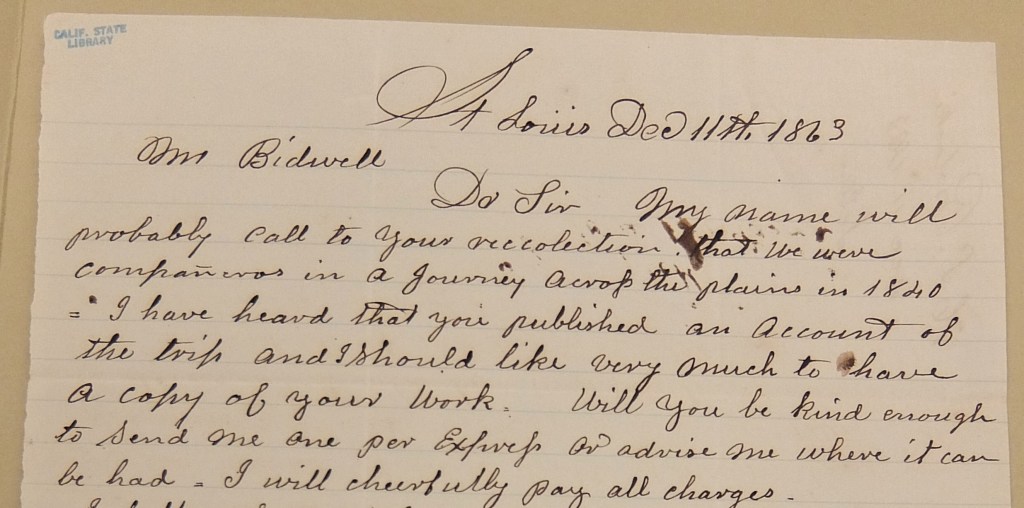 CALIF. STATE
LIBRARY
St Louis Dec 11th. 1863
Mr Bidwell
Dr Sir My name will
probably call to your reccolection. that we were
compañeros in a Journey across the plains in 1840
= I have heard that you published an account of
the trip and I should like very much to have
a copy of your Work. Will you be kind enough
to send me one per Express or advise me where it can
be had - I will cheerfully pay all charges -